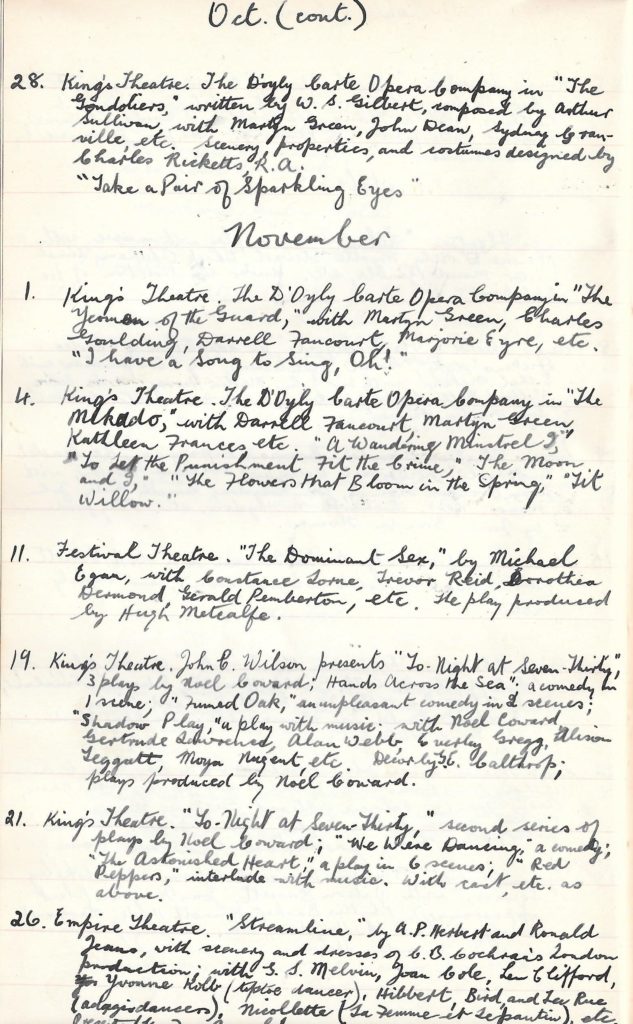 Oct. (cont.)
28. King's Theatre. The D'Oyly Carte Opera Company in "The
Gondoliers," written by W. S. Gilbert, composed by Arthur
Sullivan, with Martyn Green, John Dean, Sydney Gran-
ville, etc. Scenery, properties, and costumes designed by
Charles Ricketts, R.A.
"Take a Pair of Sparkling Eyes"
November
1. King's Theatre. The D'Oyly Carte Opera Company in "The
Yeomen of the Guard," with Martyn Green, Charles
Goulding, Darrell Fancourt, Marjorie Eyre, etc.
"I have a Song to Sing, Oh!"
4. King's Theatre. The D'Oyly Carte Opera Company in "The
Mikado," with Darrell Fancourt, Martyn Green,
Kathleen Frances etc. "A Wandering Minstrel I,"
"To Let the Punishment Fit the Crime," "The Moon
and I," "The Flowers that Bloom in the Spring," "Tit
Willow."
11. Festival Theatre. "The Dominant Sex," by Michael
Egan, with Constance Lorne, Trevor Reid, Dorothea
Dermond, Gerald Pemberton, etc. The play produced
by Hugh Metcalfe.
19. King's Theatre. John C. Wilson presents "To-Night at Seven-Thirty,"
3 plays by Noel Coward; "Hands Across the Sea", a comedy in
1 scene; "Fumed Oak," an unpleasant comedy in 2 scenes;
"Shadow Play," a play with music. With Noel Coward,
Gertrude Lawrence, Alan Webb, Everley Gregg, Alison
Leggatt, Moya Nugent, etc. Calthrop;
plays produced by Noel Coward.
21. King's Theatre. "To-Night at Seven-Thirty," second series of
plays by Noel Coward; "We Were Dancing," a comedy;
"The Astonished Heart," a play in 6 scenes; "Red
Peppers," interlude with music. With cast, etc. as
above.
26. Empire Theatre. "Streamline," by A. P. Herbert and Ronald
Jeans, with scenery and dresses of C. B. Cochran's London
production; with G. S. Melvin, Joan Cole, Len Clifford,
Yvonne Kolb (tiptoe dancer), Hibbert, Bird, and La Rue
(adagio dancers), Nicollette (La Femme et le pantin), etc.